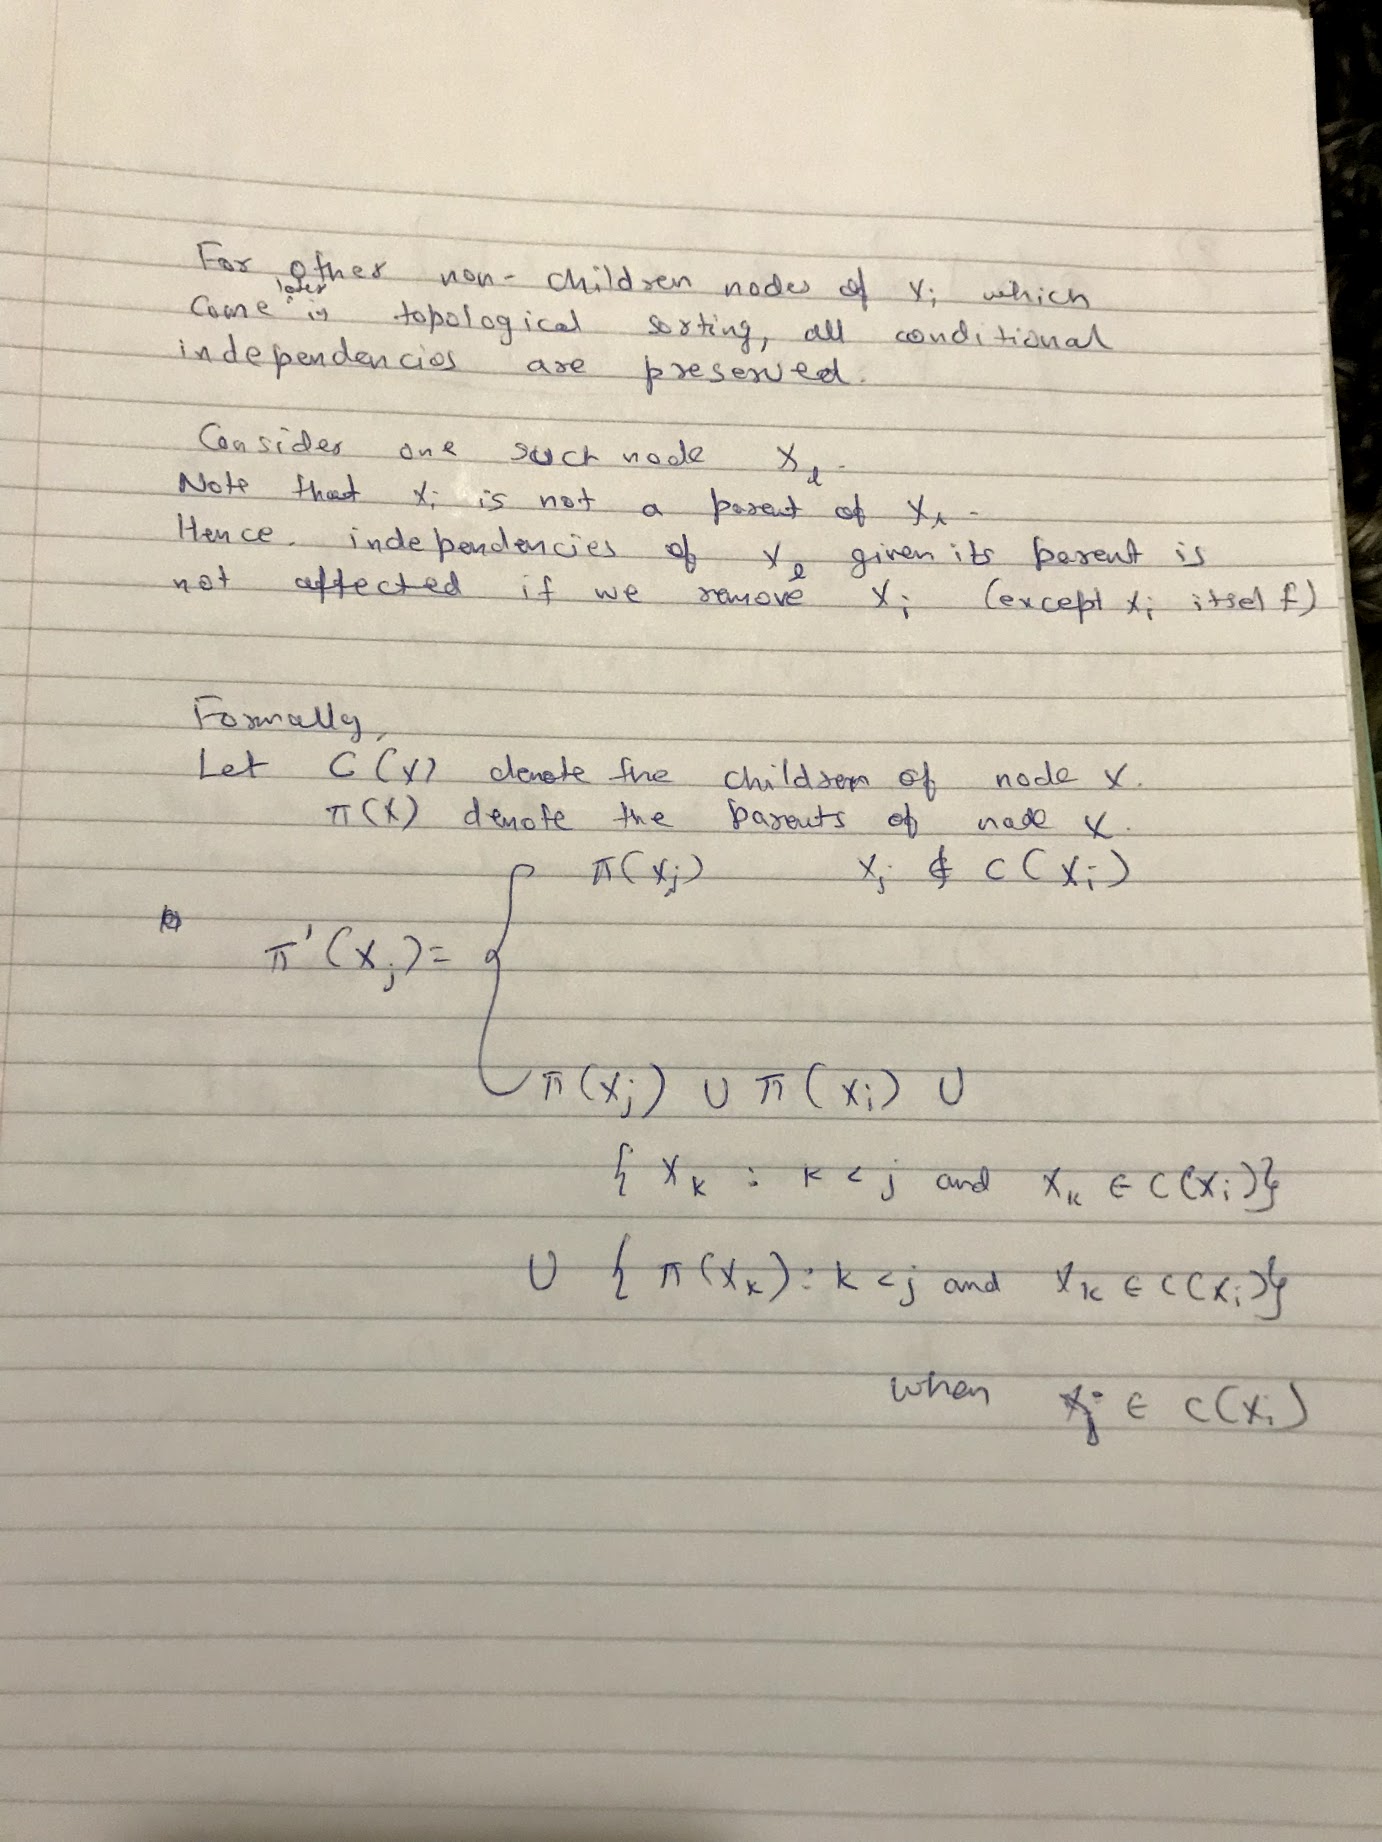 For other non-children nodes of Xi which
come later in topological sorting, all conditional
independencies are preserved.
Consider one such node Xl.
Note that Xi is not a parent of Xl.
Hence. independencies of Xl given its parent is
not affected if we remove Xi (except Xi itself)
Formally,
Let C(X) denote the children of node X.
π(X) denote the parents of node X.
π(Xj) Xj ∉ C(Xi)
π'(Xj) = {
π(Xj) ∪ π(Xi) ∪
{ Xk : k < j and Xk ∈ C(Xi)}
∪ { π(Xk) : k < j and Xk ∈ C(Xi)}
when Xj ∈ C(Xi)